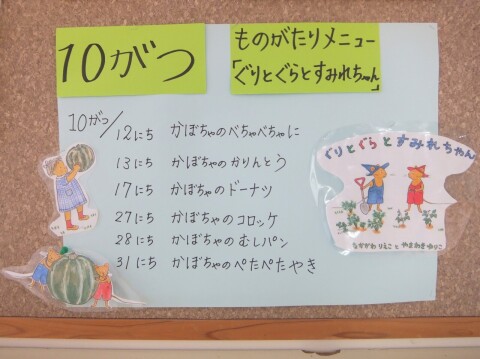 10がつ
ものがたりメニュー
「ぐりとぐらとすみれちゃん」
10がつ/
12にち かぼちゃのべちゃべちゃに
13にち かぼちゃのかりんとう
17にち かぼちゃのドーナツ
27にち かぼちゃのコロッケ
28にち かぼちゃのむしパン
31にち かぼちゃのぺたぺたやき
ぐりとぐらとすみれちゃん
なかがわりえこ と やまわきゆりこ